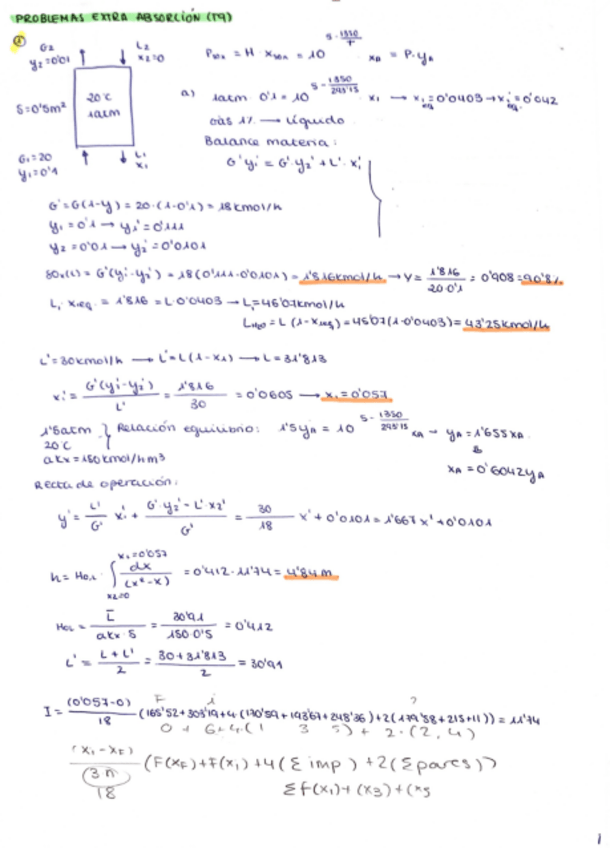 PROBLEMAS EXTRA ABSORCIÓN (T9)
G2 L2
y2=0'01 x2=0
S=0'5m²
20°C
1atm
G1=20 L1
y1=0'1 x1
P_SO2 = H · x_SO2 = 10^(5 - 1350/T) x_A = P·y_A
a) 1atm 0'1 = 10^(5 - 1350/293'15) x1 → x1eq = 0'0403 → x1'eq = 0'042
Gas 1% → líquido
Balance materia:
G'y1' = G'y2' + L'·x1'
G' = G(1-y) = 20·(1-0'1) = 18kmol/h
y1 = 0'1 → y1' = 0'111
y2 = 0'01 → y2' = 0'0101
SO2(L) = G'(y1'-y2') = 18(0'111-0'0101) = 1'816kmol/h → Y = 1'816/20·0'1 = 0'908 = 90'8%
L1·x1eq = 1'816 = L·0'0403 → L1=45'07kmol/h
L_H2O = L(1-x1eq) = 45'07(1-0'0403) = 43'25kmol/h
L' = 30kmol/h → L' = L(1-x1) → L = 31'813
x1' = G'(y1'-y2')/L' = 1'816/30 = 0'0605 → x1 = 0'057
1'5atm
20°C
akx = 150kmol/hm³
Relación equilibrio: 1'5y_A = 10^(5 - 1350/293'15) x_A → y_A = 1'655x_A
x_A = 0'6042y_A
Recta de operación:
y' = L'/G' x1' + G'y2' - L'·x2'/G' = 30/18 x' + 0'0101 = 1'667x' + 0'0101
h = H_OL · ∫ x2=0 x1=0'057 dx/(x*-x) = 0'412·11'74 = 4'84m
H_OL = L/akx·S = 30'91/150·0'5 = 0'412
L' = L+L'/2 = 30+31'813/2 = 30'91
I = (0'057-0)/18 (165'52+303'19+4·(170'59+193'67+248'36)+2(179'58+215'11)) = 11'74
F i ?
0 + 6+4·(1 3 5) + 2·(2, 4)
(x1-xF)/3n (F(xF)+F(x1)+4(Σimp)+2(Σpares))
18 Σf(x1)+(x3)+(x5
1